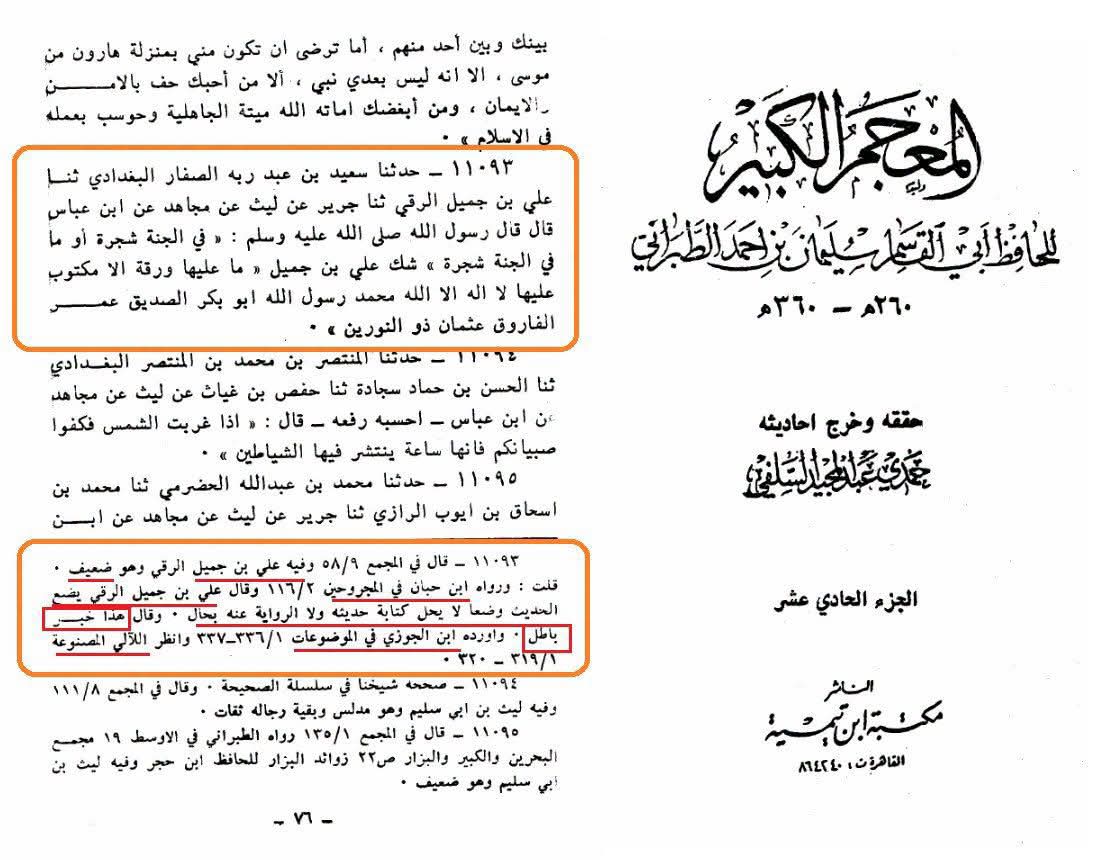 المعجم الكبير
للحافظ أبي القاسم سليمان بن احمد الطبراني
٢٦٠هـ – ٣٦٠هـ
حققه وخرج احاديثه
حمدي عبد المجيد السلفي
الجزء الحادي عشر
الناشر
مكتبة ابن تيمية
القاهرة ت : ٨٦٤٢٤٠
بينك وبين أحد منهم ، أما ترضى ان تكون مني بمنزلة هارون من
موسى ، الا انه ليس بعدي نبي ، ألا من أحبك حف بالامن
والايمان ، ومن أبغضك اماته الله ميتة الجاهلية وحوسب بعمله
في الاسلام » ٠
١١٠٩٣ – حدثنا سعيد بن عبد ربه الصفار البغدادي ثنا
علي بن جميل الرقي ثنا جرير عن ليث عن مجاهد عن ابن عباس
قال قال رسول الله صلى الله عليه وسلم : « في الجنة شجرة أو ما
في الجنة شجرة » شك علي بن جميل « ما عليها ورقة الا مكتوب
عليها لا اله الا الله محمد رسول الله ابو بكر الصديق عمر
الفاروق عثمان ذو النورين » ٠
١١٠٩٤ – حدثنا المنتصر بن محمد بن المنتصر البغدادي
ثنا الحسن بن حماد سجادة ثنا حفص بن غياث عن ليث عن مجاهد
عن ابن عباس – احسبه رفعه – قال : « اذا غربت الشمس فكفوا
صبيانكم فانها ساعة ينتشر فيها الشياطين » ٠
١١٠٩٥ – حدثنا محمد بن عبدالله الحضرمي ثنا محمد بن
اسحاق بن ايوب الرازي ثنا جرير عن ليث عن مجاهد عن ابن
١١٠٩٣ – قال في المجمع ٥٨/٩ وفيه علي بن جميل الرقي وهو ضعيف ٠
قلت : ورواه ابن حبان في المجروحين ١١٦/٢ وقال علي بن جميل الرقي يضع
الحديث وضعا لا يحل كتابة حديثه ولا الرواية عنه بحال ٠ وقال هذا خبر
باطل ٠ واورده ابن الجوزي في الموضوعات ٣٣٦/١–٣٣٧ وانظر اللآلي المصنوعة
٣١٩/١ – ٣٢٠ ٠
١١٠٩٤ – صححه شيخنا في سلسلة الصحيحة ٠ وقال في المجمع ١١١/٨
وفيه ليث بن ابي سليم وهو مدلس وبقية رجاله ثقات ٠
١١٠٩٥ – قال في المجمع ١٣٥/١ رواه الطبراني في الاوسط ١٩ مجمع
البحرين والكبير والبزار ص٢٢ زوائد البزار للحافظ ابن حجر وفيه ليث بن
ابي سليم وهو ضعيف ٠
– ٧٦ –